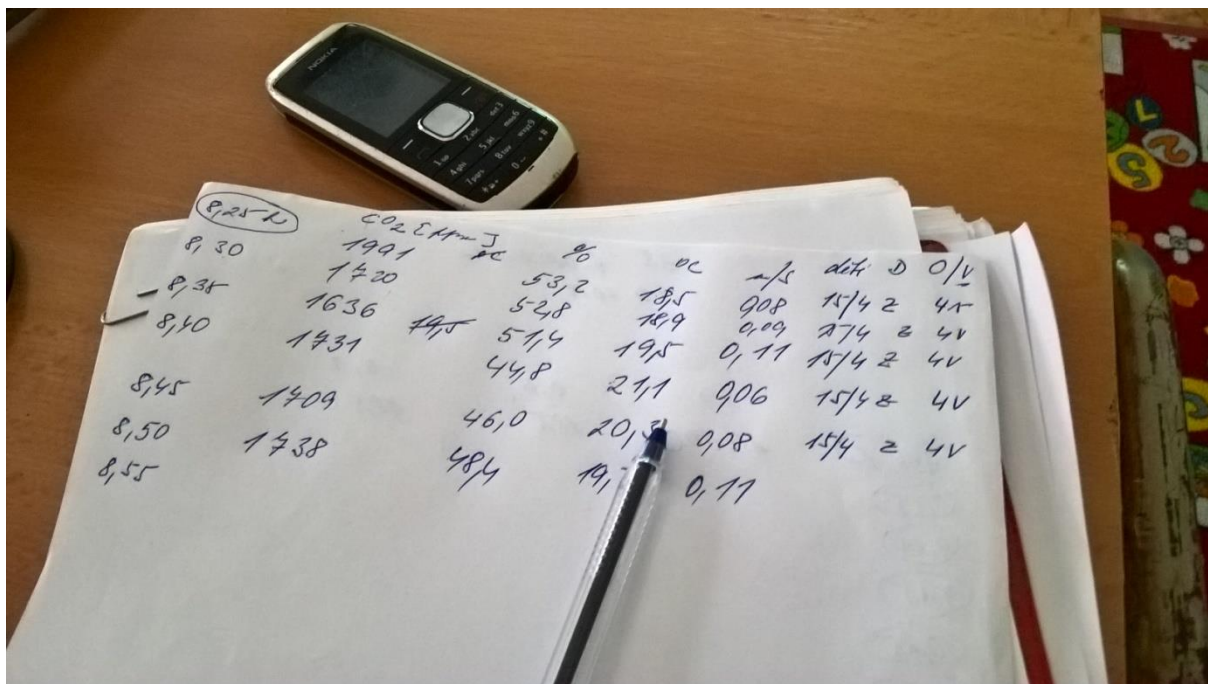 NOKIA
8,25 h
CO2 [ppm] °C % °C m/s děti D O/V
8,30 1991 53,2 18,5 0,08 15/4 z
8,35 1720 52,8 18,9 0,09 15/4 z 4V
8,40 1636 19,5 51,4 19,5 0,11 15/4 z 4V
1731 44,8 21,1 0,06 15/4 z 4V
8,45 1709 46,0 20,3 0,08 15/4 z 4V
8,50 1738 48,4 19, 0,11
8,55